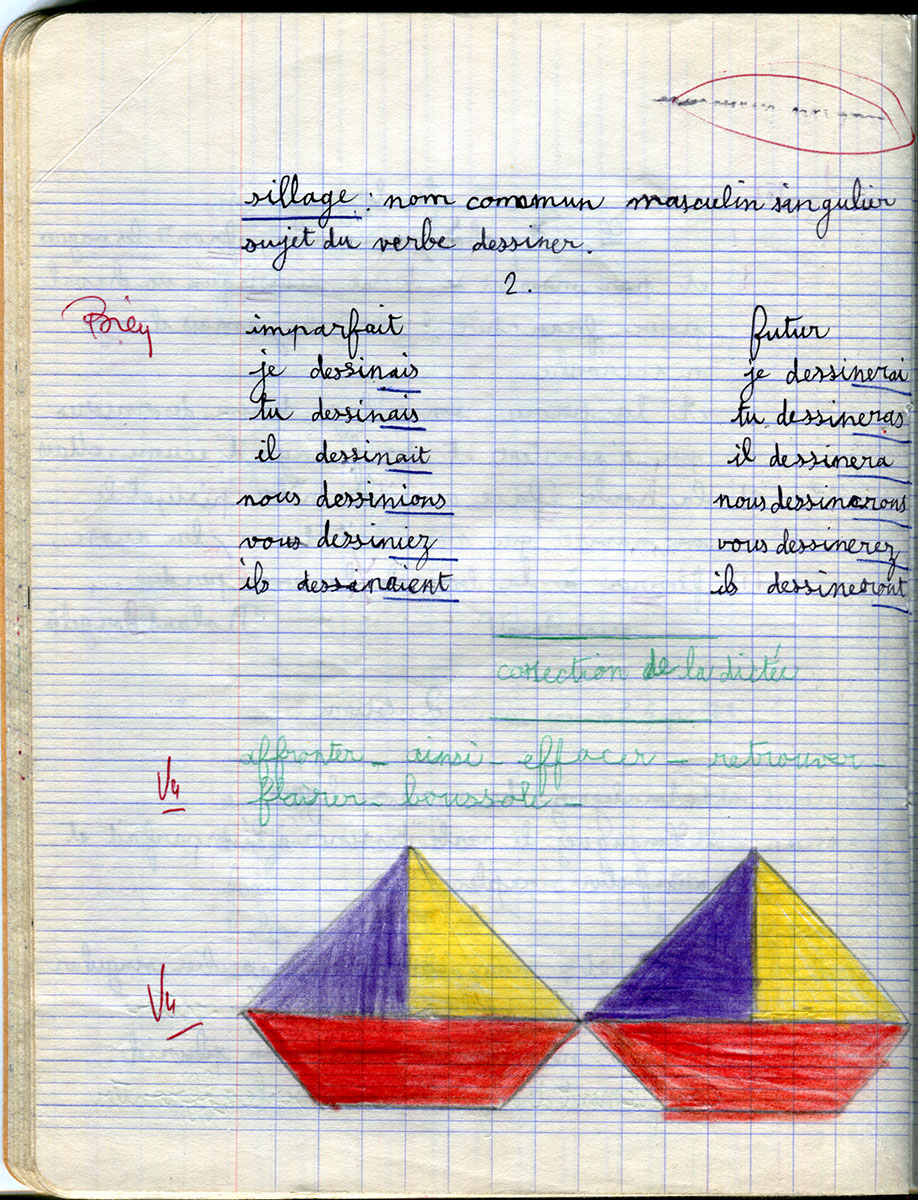 sillage : nom commun masculin singulier
sujet du verbe dessiner.
2.
Bien
imparfait futur
je dessinais je dessinerai
tu dessinais tu dessineras
il dessinait il dessinera
nous dessinions nous dessinerons
vous dessiniez vous dessinerez
ils dessinaient ils dessineront
correction de la dictée
affronter - ainsi - effacer - retrouver -
Vu
flairer - boussole -
Vu